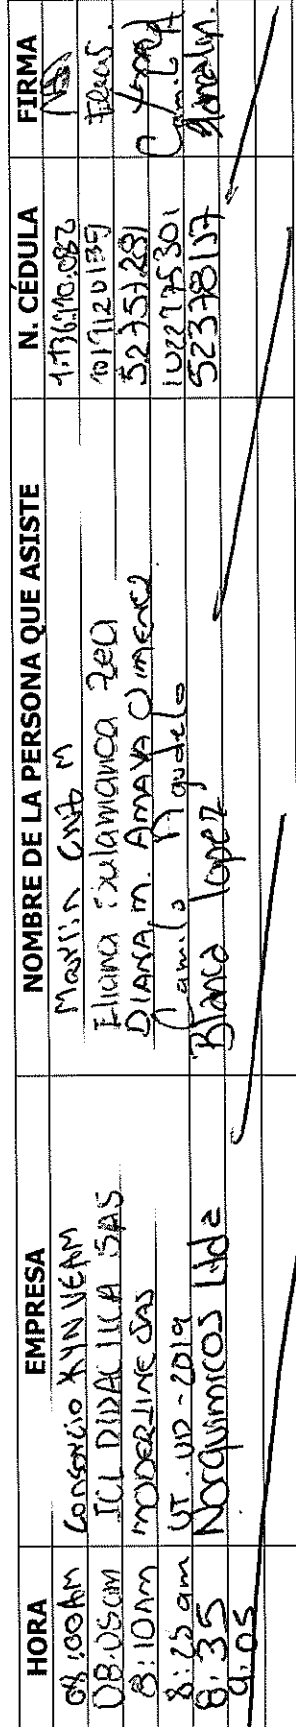 HORA EMPRESA NOMBRE DE LA PERSONA QUE ASISTE N. CÉDULA FIRMA
08:00AM Consorcio KYNVEAM Marlin M
08:05am ICL DIDACTICA SAS Eliana Salamanca Zea 1019120139
8:10AM MODERLINE SAS DIANA M. AMAYA JIMENEZ 52757281
8:25am UT. UD-2019 Camilo Agudelo 1022975301 Camilo A
8:35 Norquimicos Ltda Blanca Lopez 52378117
9:05